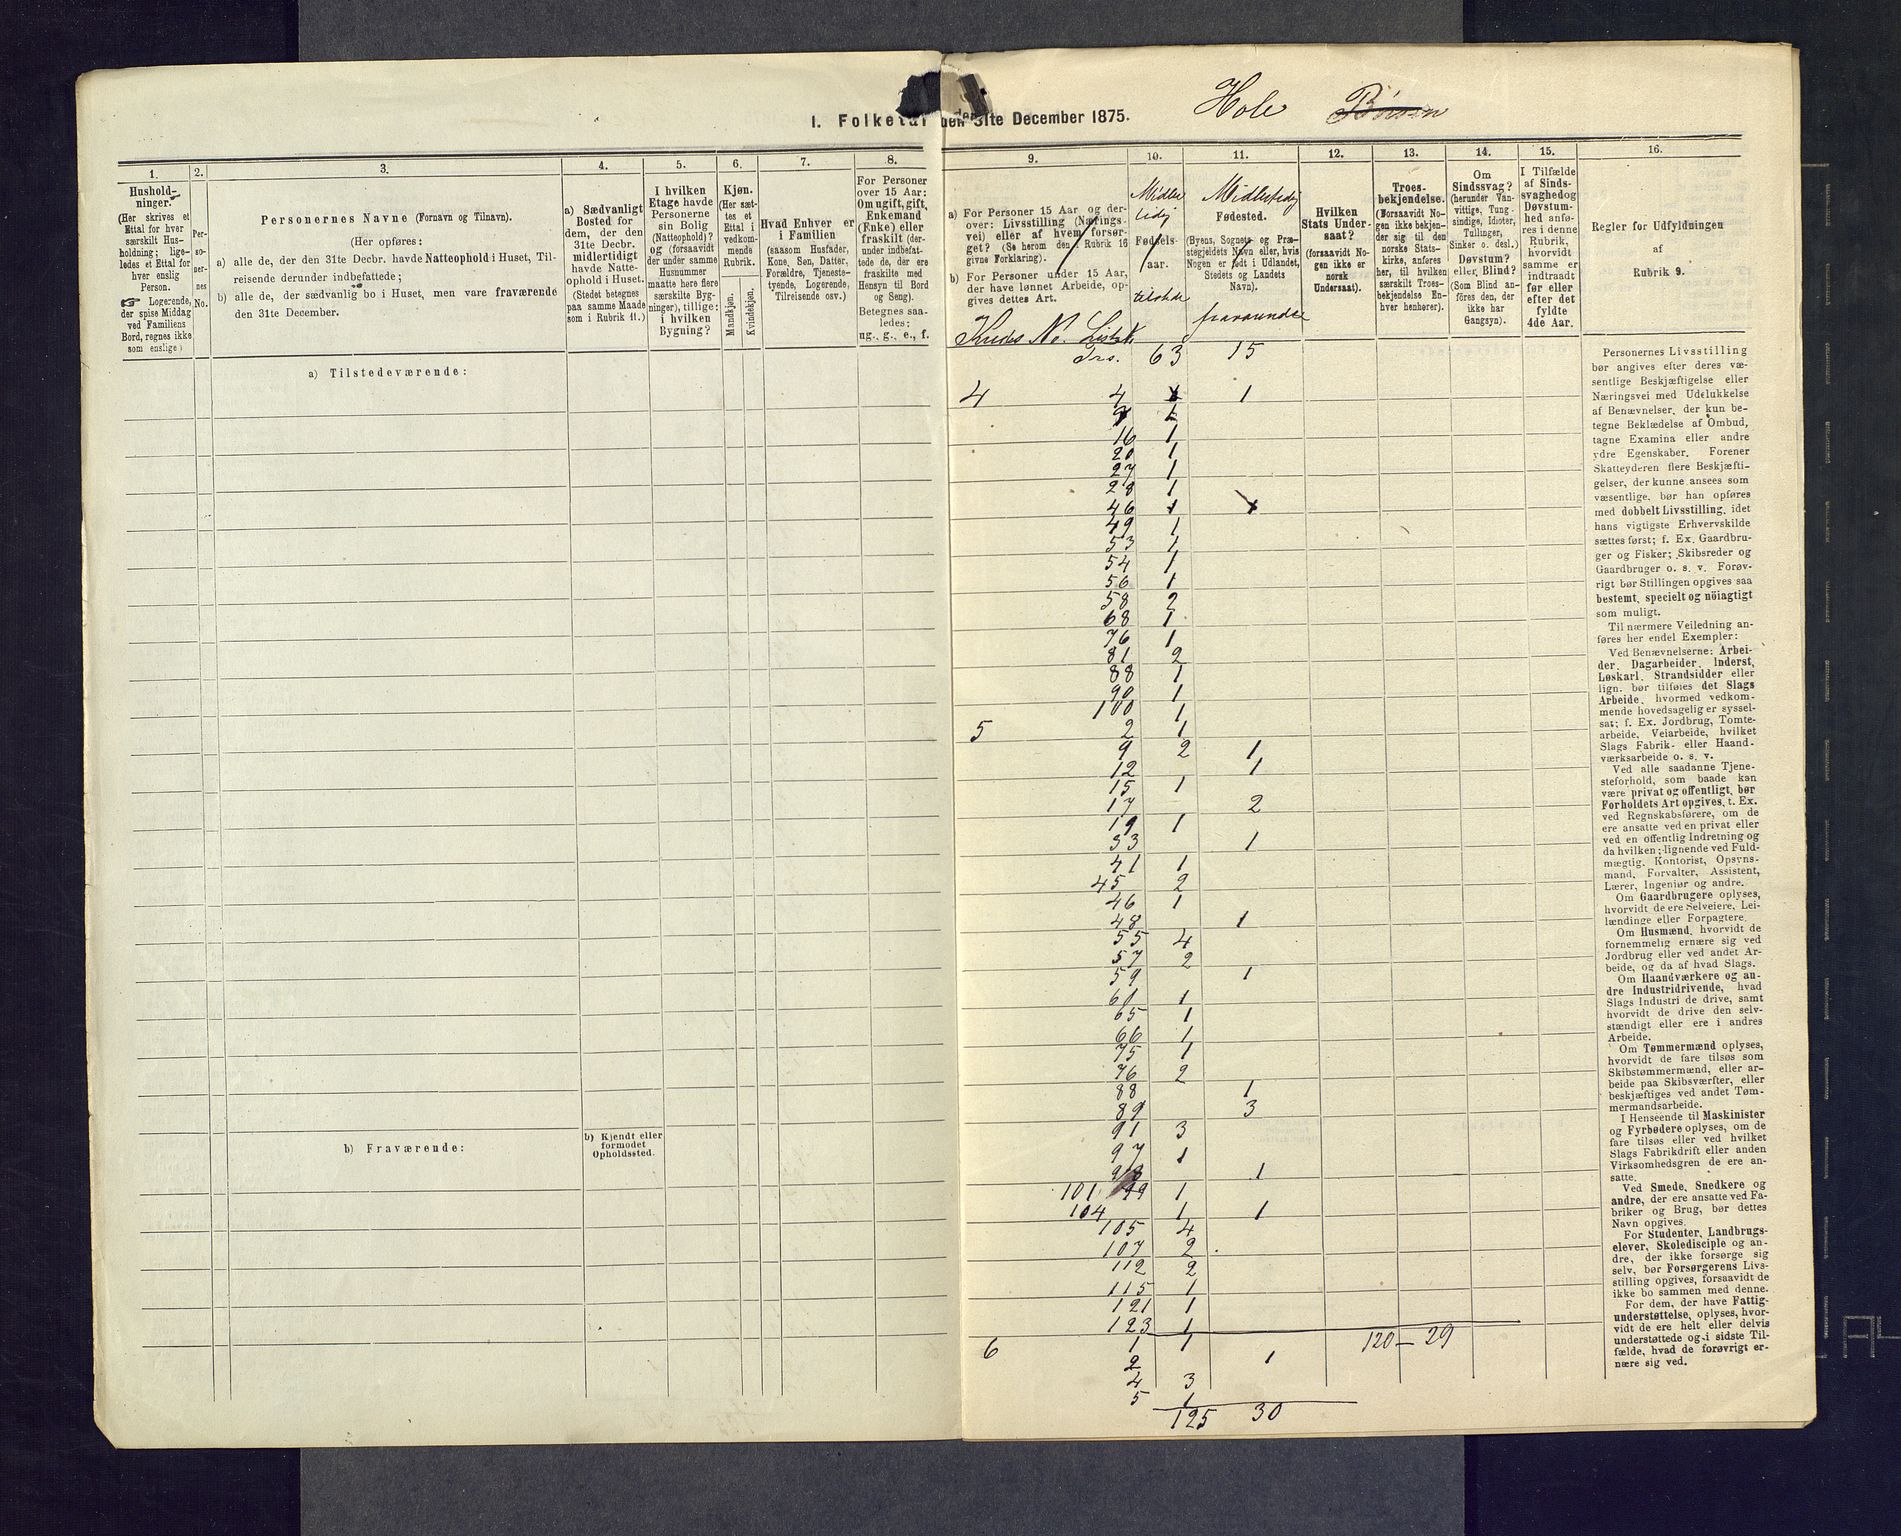 Hole Børsen
I. Folketal den 31te December 1875.
1. 2. 3. 4. 5. 6. 7. 8. 9. 10. 11. 12. 13. 14. 15. 16.
Hushold-
ninger.
(Her skrives et
Ettal for hver
særskilt Hus-
holdning; lige-
ledes et Ettal for
hver enslig
Person.
☞ Logerende,
der spise Middag
ved Familiens
Bord, regnes ikke
som enslige.)
Per-
so-
per-
nes
No.
Personernes Navne (Fornavn og Tilnavn).
(Her opføres:
a) alle de, der den 31te Decbr. havde Natteophold i Huset, Til-
reisende derunder indbefattede;
b) alle de, der sædvanlig bo i Huset, men vare fraværende
den 31te December.
a) Sædvanligt
Bosted for
dem, der den
31te Decbr.
midlertidigt
havde Natte-
ophold i Huset.
(Stedet betegnes
paa samme Maade
som i Rubrik 11.)
I hvilken
Etage havde
Personerne
sin Bolig
(Natteophold)?
og (forsaavidt
der under samme
Husnummer
maatte høre flere
særskilte Byg-
ninger), tillige:
i hvilken
Bygning?
Kjøn.
(Her sæt-
tes et
Ettal i
vedkom-
mende
Rubrik.
Mandkjøn.
Kvindekjøn.
Hvad Enhver er
i Familien
(saasom Husfader,
Kone, Søn, Datter,
Forældre, Tjeneste-
tyende, Logerende,
Tilreisende osv.)
For Personer
over 15 Aar:
Om ugift, gift,
Enkemand
(Enke) eller
fraskilt (der-
under indbefat-
tede de, der ere
fraskilte med
Hensyn til Bord
og Seng).
Betegnes saa-
ledes:
ug., g., e., f.
a) For Personer 15 Aar og der-
over: Livsstilling (Nærings-
vei) eller af hvem forsør-
get? (Se herom den i Rubrik 16
givne Forklaring).
b) For Personer under 15 Aar,
der have lønnet Arbeide, op-
gives dettes Art.
Kreds No. Liste
Midler
tidig
Fødsels-
aar.
tilstede
Midlertidig
Fødested.
(Byens, Sognets og Præ-
stegjeldets Navn eller, hvis
Nogen er født i Udlandet,
Stedets og Landets
Navn).
fraværende
Hvilken
Stats Under-
saat?
(forsaavidt No-
gen ikke er
norsk
Undersaat).
Troes-
bekjendelse.
(Forsaavidt No-
gen ikke bekjen-
der sig til den
norske Stats-
kirke, anføres
her, til hvilken
særskilt Troes-
bekjendelse En-
hver henhører).
Om
Sindssvag?
(herunder Van-
vittige, Tung-
sindige, Idioter,
Tullinger,
Sinker o. desl.)
Døvstum?
eller Blind?
(Som Blind an-
føres den, der
ikke har
Gangsyn).
I Tilfælde
af Sinds-
svaghed og
Døvstum-
hed anfø-
res i denne
Rubrik,
hvorvidt
samme er
indtraadt
før eller
efter det
fyldte
4de Aar.
Regler for Udfyldningen
af
Rubrik 9.
a) Tilstedeværende:
Trs. 63 15
4 4 1 1
7 1
16 1
20 1
27 1
28 1
46 1 1
49 1
53 1
54 1
56 1
58 2
68 1
76 1
81 2
88 1
90 1
100 1
5 2 1
9 2 1
12 1
15 1
17 2
19 1
33 1
41 1
45 2
46 1
48 1
55 4
57 2
59 1
61 1
65 1
66 1
75 1
76 2
88 1
89 3
91 3
97 1
98 1
101 99 1
104 1 1
105 4
107 2
112 2
115 1
121 1
123 1
120 — 29
6 1 1
2 1
4 3
5 1
125 30
b) Fraværende:
b) Kjendt eller
formodet
Opholdssted.
Personernes Livsstilling
bør angives efter deres væ-
sentlige Beskjæftigelse eller
Næringsvei med Udelukkelse
af Benævnelser, der kun be-
tegne Beklædelse af Ombud,
tagne Examina eller andre
ydre Egenskaber. Forener
Skatteyderen flere Beskjæfti-
gelser, der kunne ansees som
væsentlige, bør han opføres
med dobbelt Livsstilling, idet
hans vigtigste Erhvervskilde
sættes først; f. Ex. Gaardbru-
ger og Fisker; Skibsreder og
Gaardbruger o. s. v. Forøv-
rigt bør Stillingen opgives saa
bestemt, specielt og nöiagtigt
som muligt.
Til nærmere Veiledning an-
føres her endel Exempler:
Ved Benævnelserne: Arbei-
der, Dagarbeider, Inderst,
Løskarl, Strandsidder eller
lign. bør tilføies det Slags
Arbeide, hvormed vedkom-
mende hovedsagelig er syssel-
sat; f. Ex. Jordbrug, Tomte-
arbeide, Veiarbeide, hvilket
Slags Fabrik- eller Haand-
værksarbeide o. s. v.
Ved alle saadanne Tjene-
steforhold, som baade kan
være privat og offentligt, bør
Forholdets Art opgives, t. Ex.
ved Regnskabsførere, om de
ere ansatte ved en privat eller
ved en offentlig Indretning og
da hvilken; lignende ved Fuld-
mægtig, Kontorist, Opsyns-
mand, Forvalter, Assistent,
Lærer, Ingeniør og andre.
Om Gaardbrugere oplyses,
hvorvidt de ere Selveiere, Lei-
lændinge eller Forpagtere.
Om Husmænd, hvorvidt de
fornemmelig ernære sig ved
Jordbrug eller ved andet Ar-
beide, og da af hvad Slags.
Om Haandværkere og an-
dre Industridrivende, hvad
Slags Industri de drive, samt
hvorvidt de drive den selv-
stændigt eller ere i andres
Arbeide.
Om Tømmermænd oplyses,
hvorvidt de fare tilsøs som
Skibstømmermænd, eller ar-
beide paa Skibsværfter, eller
beskjæftiges ved andet Tøm-
mermandsarbeide.
I Henseende til Maskinister
og Fyrbødere oplyses, om de
fare tilsøs eller ved hvilket
Slags Fabrikdrift eller anden
Virksomhedsgren de ere an-
satte.
Ved Smede, Snedkere og
andre, der ere ansatte ved Fa-
briker og Brug, bør dettes
Navn opgives.
For Studenter, Landbrugs-
elever, Skoledisciple og an-
dre, der ikke forsørge sig
selv, bør Forsørgerens Livs-
stilling opgives, forsaavidt de
ikke bo sammen med denne.
For dem, der have Fattig-
understøttelse, oplyses, hvor-
vidt de ere helt eller delvis
understøttede og i sidste Til-
fælde, hvad de forøvrigt er-
nære sig ved.